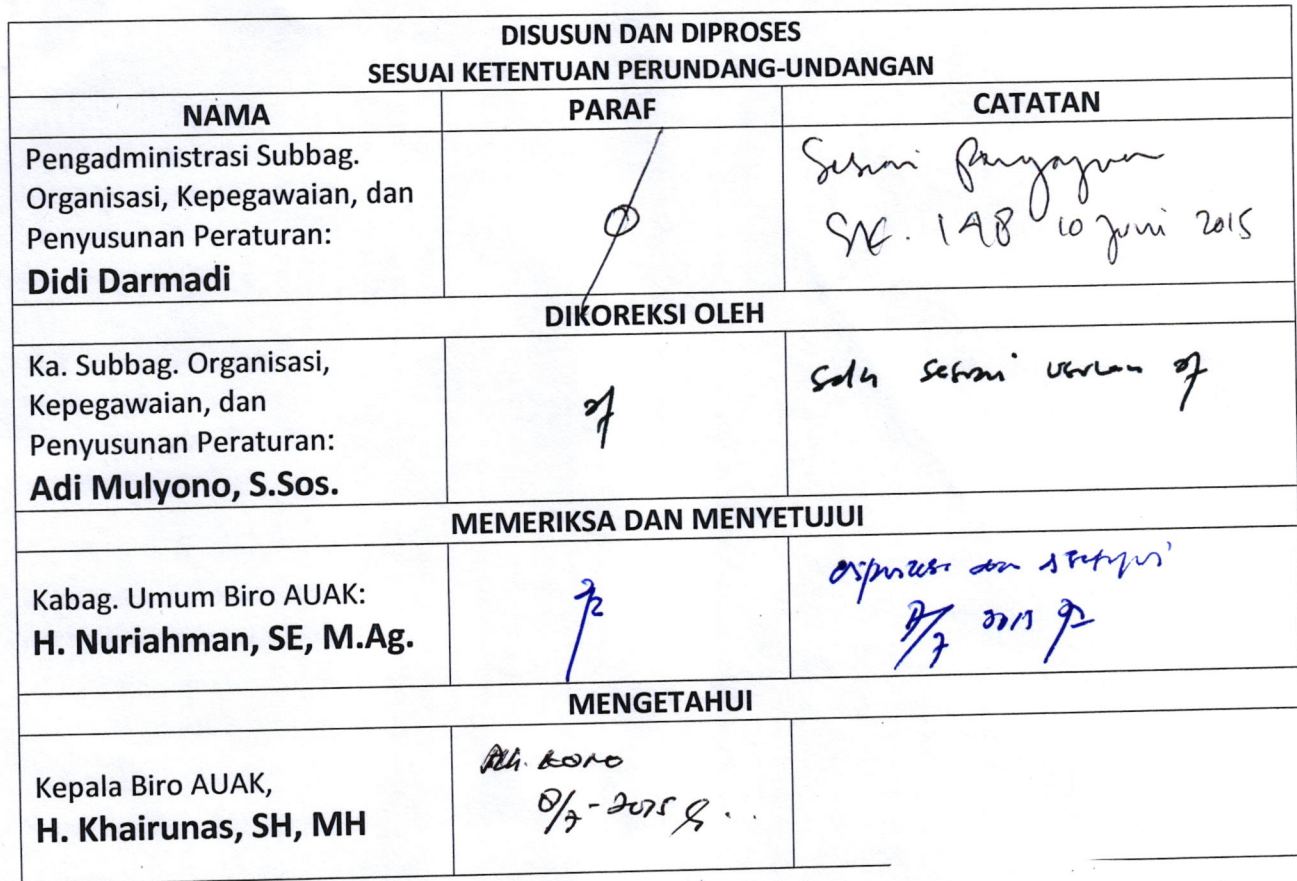 DISUSUN DAN DIPROSES
SESUAI KETENTUAN PERUNDANG-UNDANGAN
NAMA PARAF CATATAN
Pengadministrasi Subbag.
Organisasi, Kepegawaian, dan
Penyusunan Peraturan:
Didi Darmadi
Sesuai
10 Juni 2015
DIKOREKSI OLEH
Ka. Subbag. Organisasi,
Kepegawaian, dan
Penyusunan Peraturan:
Adi Mulyono, S.Sos.
sesuai
MEMERIKSA DAN MENYETUJUI
Kabag. Umum Biro AUAK:
H. Nuriahman, SE, M.Ag.
dan
MENGETAHUI
Kepala Biro AUAK,
H. Khairunas, SH, MH
8/7-2015